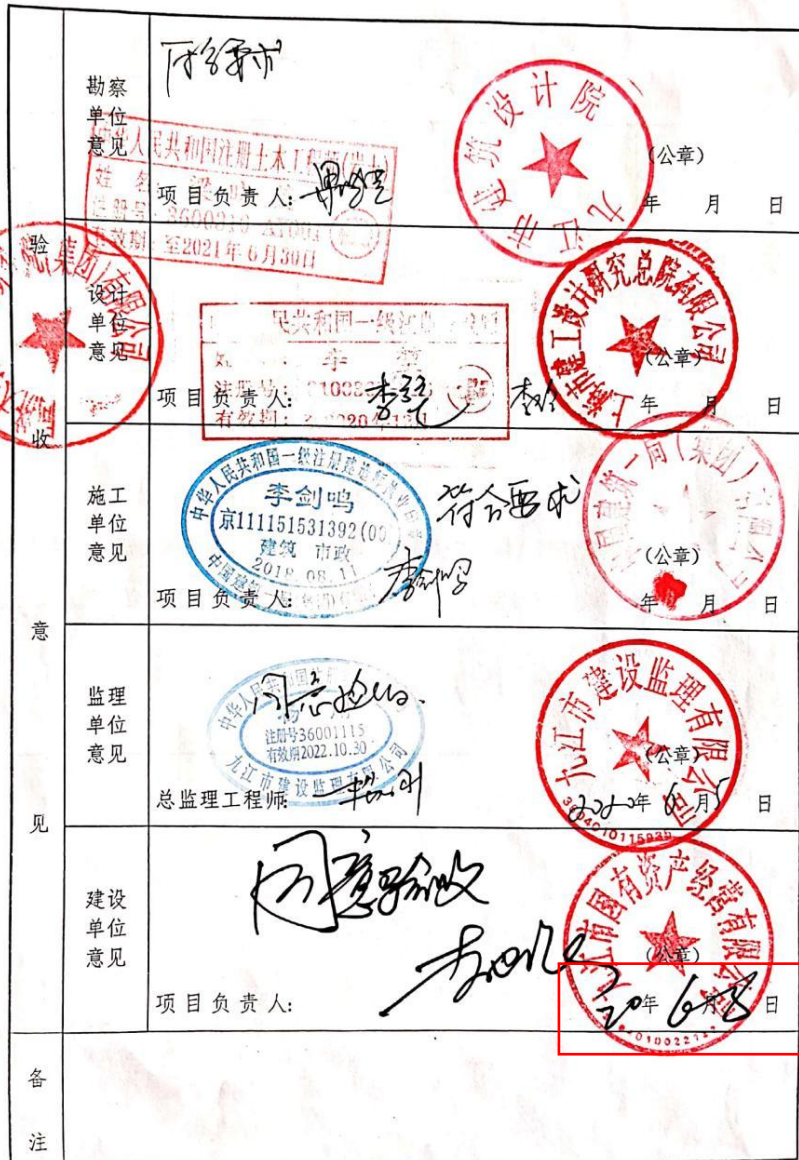 验收意见
勘察单位意见
符合要求
中华人民共和国注册土木工程师(岩土)
姓 名
有效期: 至2021年6月30日
项目负责人:
九江市建筑设计院
(公章)
年 月 日
设计单位意见
(集团)有限公司
民共和国一级注册
项目负责人:
上海市建工设计研究总院有限公司
(公章)
年 月 日
施工单位意见
中华人民共和国一级注册建造师执业印章
李剑鸣
京111151531392(00)
建筑 市政
2018.08.11
符合要求
项目负责人: 李剑鸣
(公章)
年 月 日
监理单位意见
同意验收.
注册号36001115
有效期2022.10.30
九江市建设监理有限公司
总监理工程师:
九江市建设监理有限公司
(公章)
2020年 6月5日
建设单位意见
同意验收
项目负责人:
九江市国有资产经营有限公司
(公章)
20年 6月5日
备注